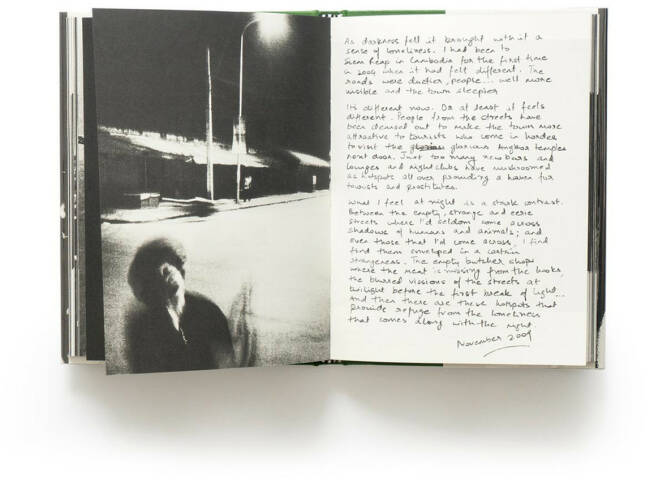 As darkness fell it brought with it a
sense of loneliness. I had been to
Siem Reap in Cambodia for the first time
in 2004 when it had felt different. The
roads were dustier, people... well more
visible and the town sleepier
It's different now. Or at least it feels
different. People from the streets have
been cleansed out to make the town more
attractive to tourists who come in hordes
to visit the glorious Angkor temples
next door. Just too many new bars and
lounges and nightclubs have mushroomed
as hotspots all over providing a haven for
tourists and prostitutes.
What I feel at night is a stark contrast.
Between the empty, strange and eerie
streets where I'd seldom come across
shadows of humans and animals; and
even those that I'd come across, I find
find them enveloped in a certain
strangeness. The empty butcher shops
where the meat is missing from the hooks,
the blurred visions of the streets at
twilight before the first break of light...
And then there are these hotspots that
provide refuge from the loneliness
that comes along with the night.
November 2009